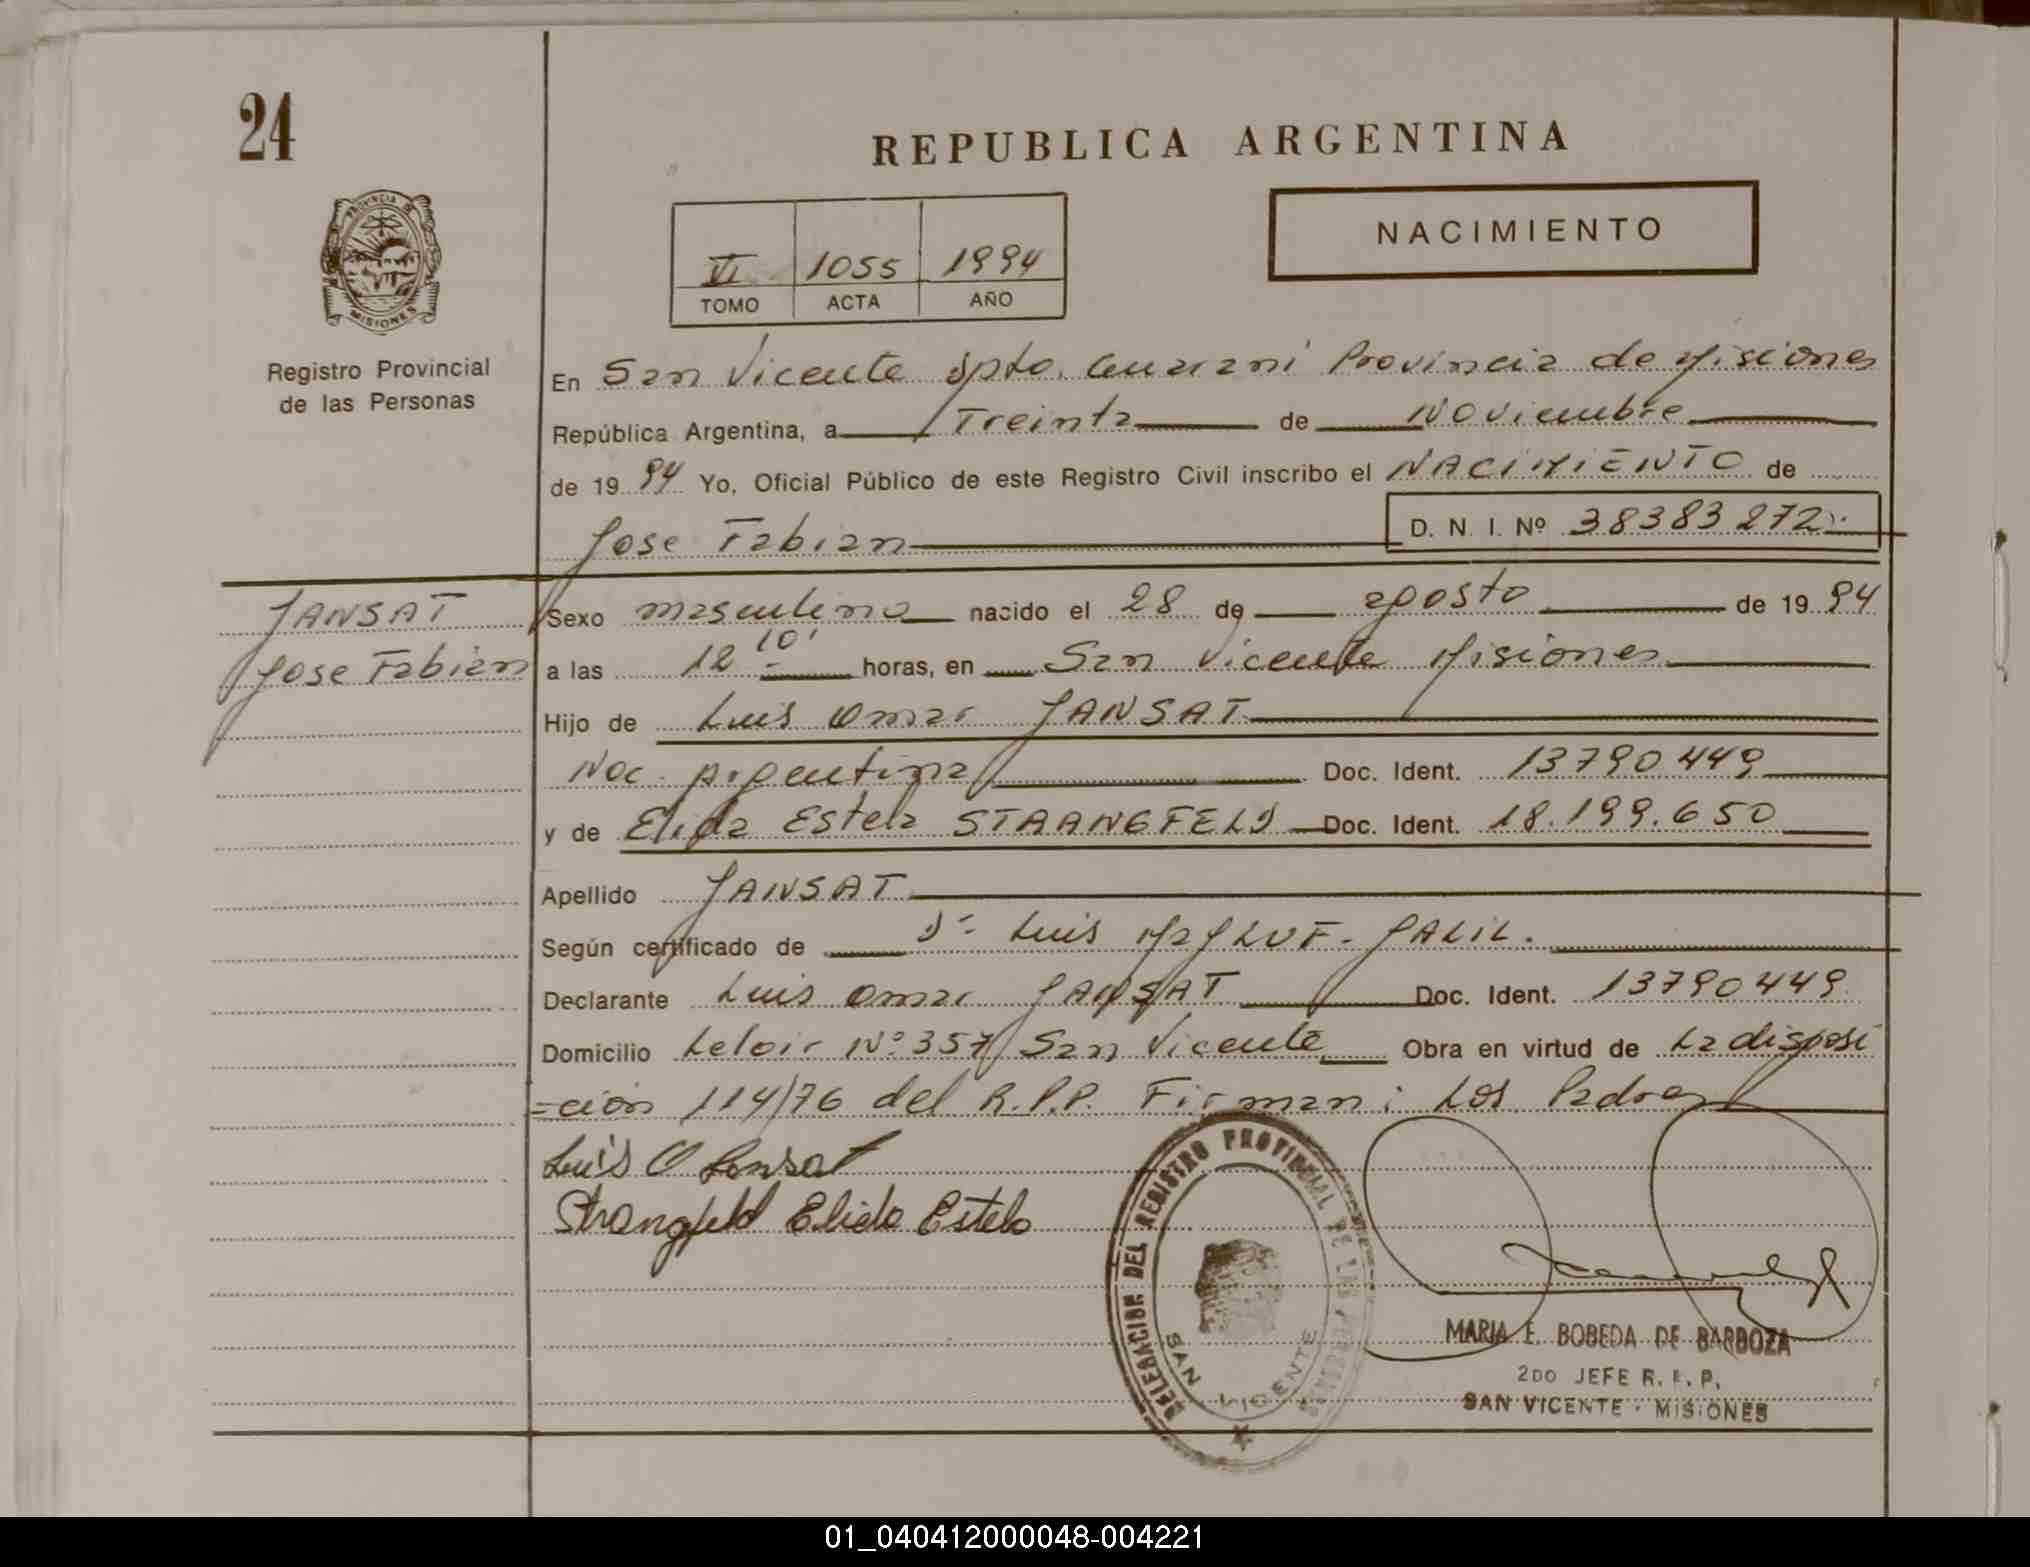 24
REPUBLICA ARGENTINA
NACIMIENTO
VI 1055 1994
TOMO ACTA AÑO
PROVINCIA DE
MISIONES
Registro Provincial
de las Personas
En San Vicente Dpto. Guarani Provincia de Misiones
República Argentina, a Treinta de Noviembre
de 1994 Yo, Oficial Público de este Registro Civil inscribo el NACIMIENTO de
Jose Fabian D. N. I. Nº 38383272
JANSAT
Jose Fabian
Sexo masculino nacido el 28 de agosto de 1994
a las 12 10' horas, en San Vicente Misiones
Hijo de Luis Omar JANSAT
Nac. Argentina Doc. Ident. 13790449
y de Elida Estela STAANGFELD Doc. Ident. 18.199.650
Apellido JANSAT
Según certificado de Dr. Luis
Declarante Luis Omar JANSAT Doc. Ident. 13790449
Domicilio Leloir Nº 357 San Vicente Obra en virtud de La disposi
=ción 114/76 del R.P.P. Firman: Los Padres
Luis O Jansat
Strangfeld Elida Estela
DELEGACION DEL REGISTRO PROVINCIAL DE LAS PERSONAS
SAN VICENTE
MARIA E. BOBEDA DE BARBOZA
2DO JEFE R. P. P.
SAN VICENTE - MISIONES
01_040412000048-004221